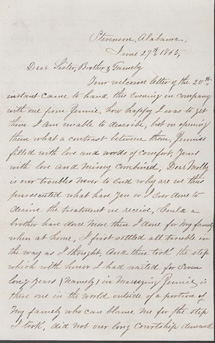 Stevenson, Alabama.
June 27th 1865,
Dear Sister, Brother, & Family
Your welcome letter of the 20th
instant came to hand this evening in company
with one from Jennie, how happy I was to get
them I am unable to describe, but on opening
them what a contrast between them, Jennies
filled with love and words of comfort, Yours
with love and misery combined, Dear Molly
is our troubles never to end, why are we thus
persecuted what have you or I ever done to
deserve the treatment we receive, Could a
brother have done more than I done for my family
when at home, I first settled all trouble in
the way as I thought, And then took the step
which with tears I had waited for
long years (Namely) in Marrying Jennie, is
there one in the world outside of a portion of
my family who can blame me for the step
I took, did not our long Courtship demand